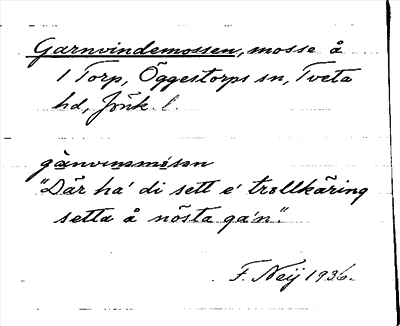 Garnvindemossen, mosse å
1 Torp, Öggestorps sn, Tveta
hd, Jönk. l.
gànvinsmåsn
"Där ha' di sett e' trollkäring
setta å nösta ga'n".
F. Neij 1936.